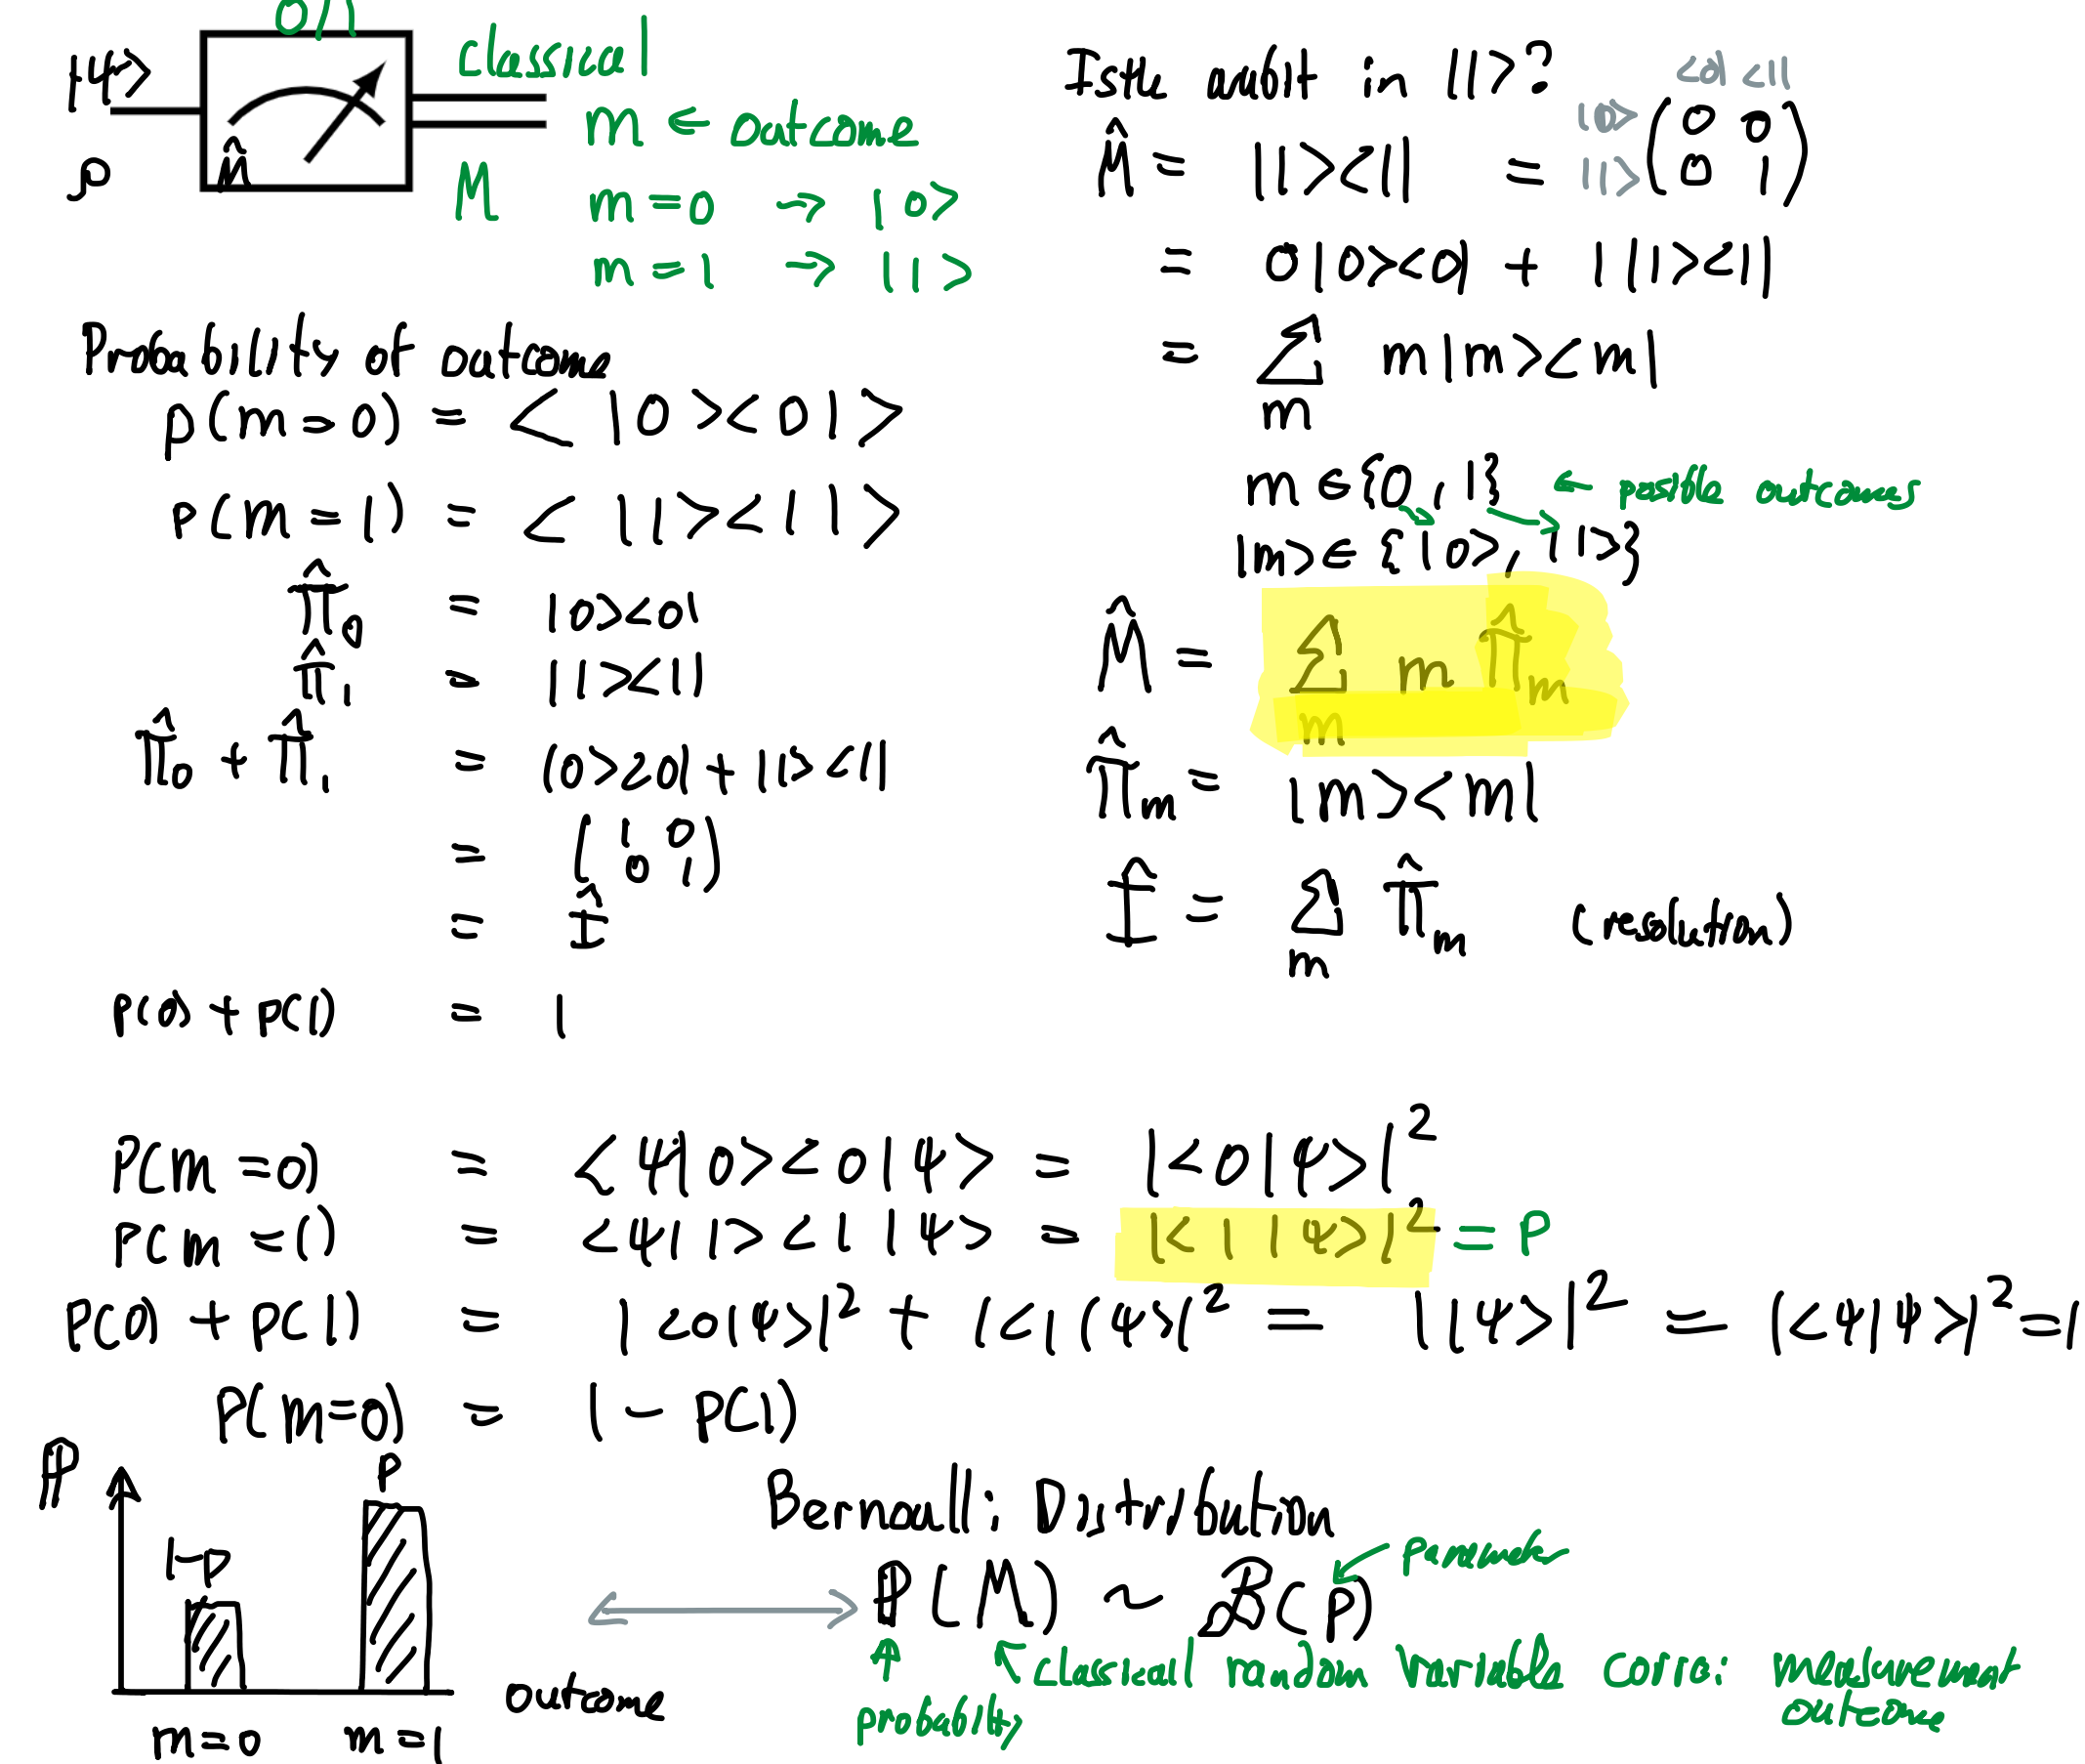 0/1
|ψ> classical
m ← outcome
ρ M̂ M m=0 → |0>
m=1 → |1>
Probability of outcome
p(m=0) = < |0><0| >
p(m=1) = < |1><1| >
Π̂₀ = |0><0|
Π̂₁ = |1><1|
Π̂₀ + Π̂₁ = |0><0| + |1><1|
= ( 1 0
0 1 )
= Î
p(0) + p(1) = 1
Is the qubit in |1>?
<0| <1|
M̂ = |1><1| = |0> ( 0 0
|1> 0 1 )
= 0|0><0| + 1|1><1|
= Σ m|m><m|
m
m ∈ {0, 1} ← possible outcomes
|m> ∈ {|0>, |1>}
M̂ = Σ m Π̂m
m
Π̂m = |m><m|
Î = Σ Π̂m (resolution)
m
P(m=0) = <ψ|0><0|ψ> = |<0|ψ>|²
P(m=1) = <ψ|1><1|ψ> = |<1|ψ>|² = P
P(0) + P(1) = |<0|ψ>|² + |<1|ψ>|² = ||ψ>|² = |<ψ|ψ>|² = 1
P(m=0) = 1 - P(1)
ℙ
P
1-p
m=0 m=1 outcome
Bernoulli Distribution
ℙ(M) ~ ℬ(p) ← parameter
↑ probability
↖ classical random variable corr: measurement
outcome